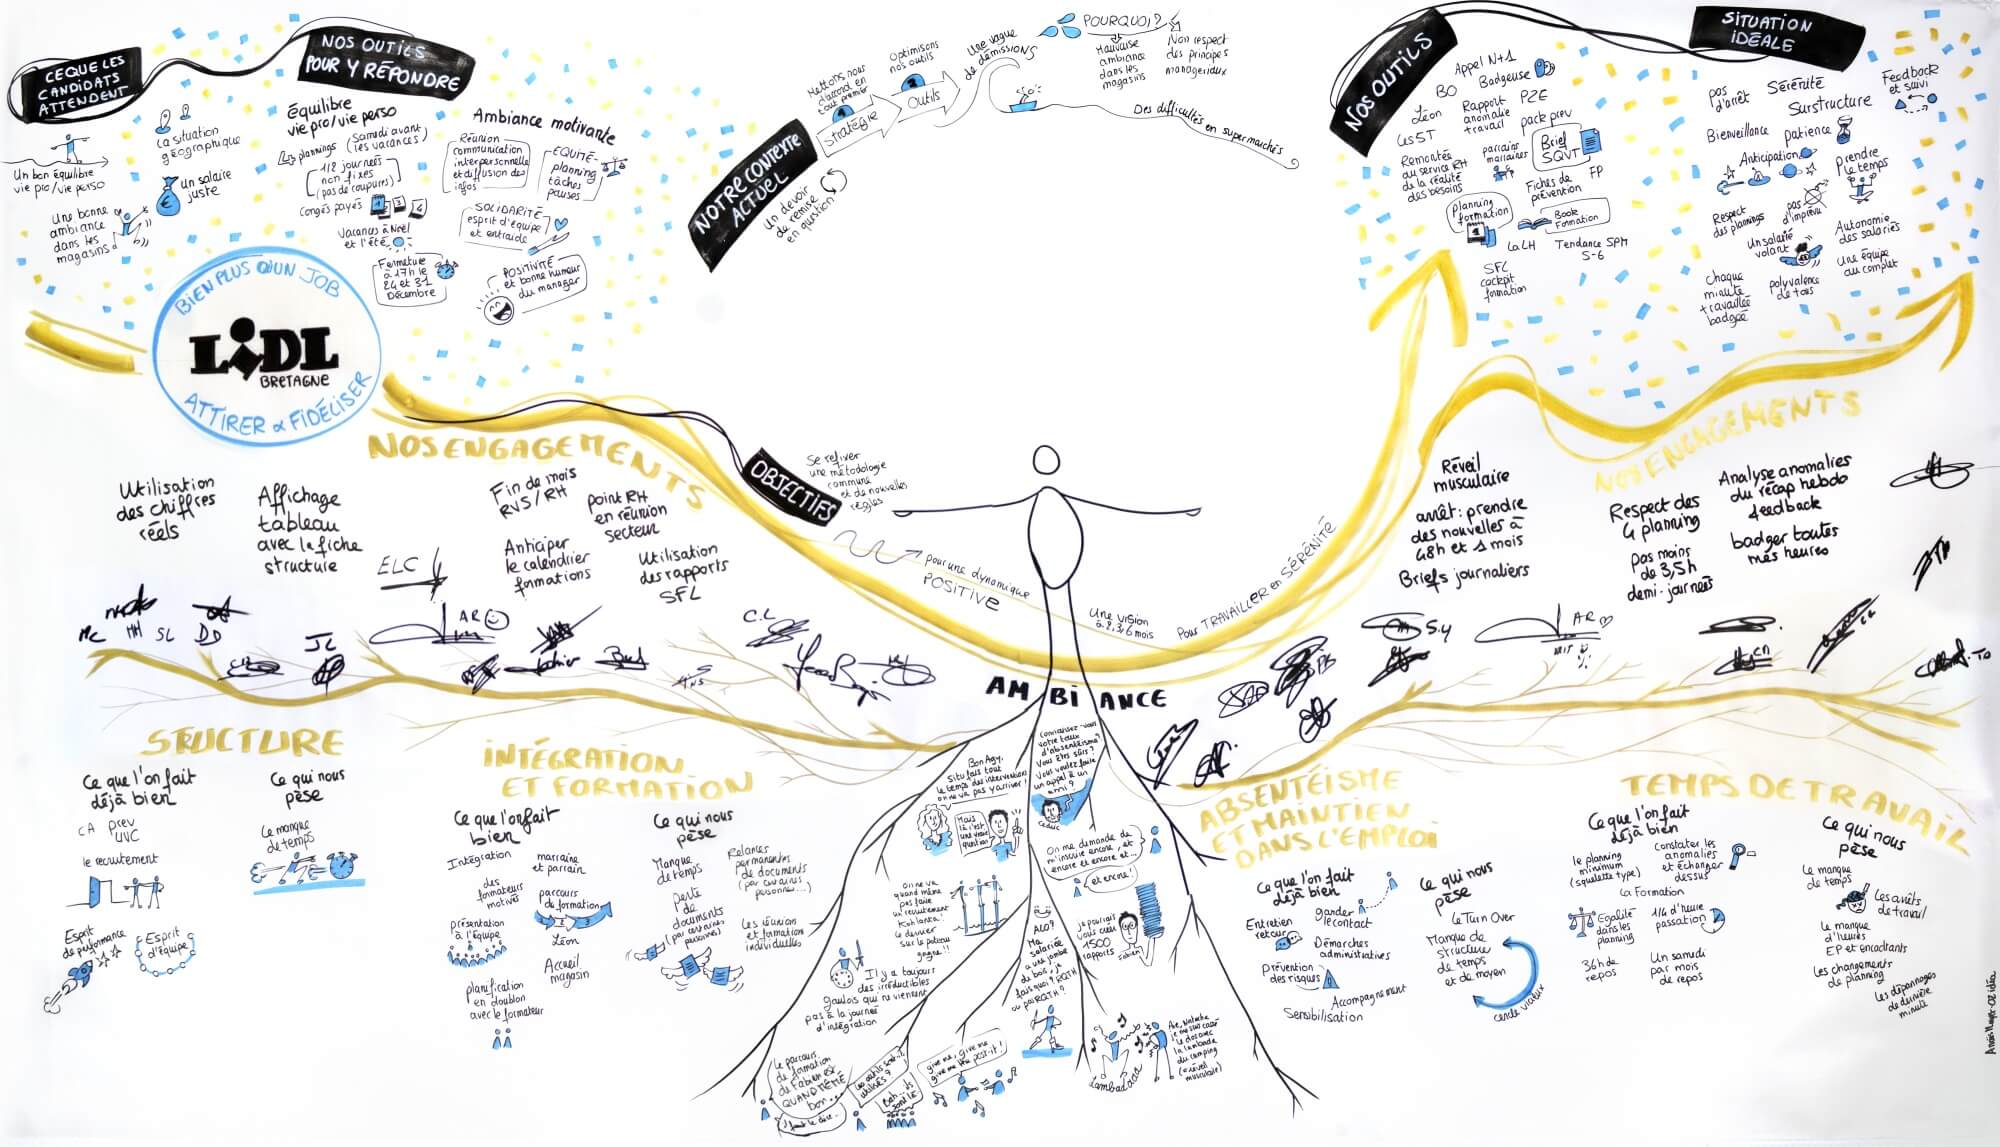 CE QUE LES
CANDIDATS
ATTENDENT
Un bon équilibre
vie pro/vie perso
Une bonne
ambiance
dans les
magasins
La situation
géographique
Un salaire
juste
NOS OUTILS
POUR Y RÉPONDRE
équilibre
vie pro/vie perso
plannings
(Samedi avant
les vacances)
1/2 journées
non fixes
(pas de coupures)
Congés payés
Vacances à Noël
et l'été
Fermeture
à 17h le
24 et 31
Décembre
Ambiance motivante
Réunion
communication
interpersonnelle
et diffusion des
infos
EQUITÉ-
planning
tâches
pauses
SOLIDARITÉ
esprit d'équipe
et entraide
POSITIVITÉ
et bonne humeur
du manager
BIEN PLUS QU'UN JOB
LIDL
BRETAGNE
ATTIRER & FIDÉLISER
NOTRE CONTEXTE
ACTUEL
Un devoir
de remise
en question
Mettons nous
d'accord en
tout premier
Stratégie
Optimisons
nos outils
Outils
Une vague
de démissions
POURQUOI ?
Mauvaise
ambiance
dans les
magasins
Non respect
des principes
manageriaux
Des difficultés en supermarchés
NOS OUTILS
Appel N+1
Badgeuse
BO
Léon
Les ST
Rapport
anomalie
travail
PZE
pack prev
Remontée
au service RH
de la réalité
des besoins
parrains
marraines
Brief
SQVT
Fiches de
prévention
FP
Planning
formation
Book
Formation
La LH
Tendance SPM
S-6
SFL
cockpit
formation
SITUATION
IDÉALE
pas
d'arrêt
Sérénité
Surstructure
Feedback
et suivi
Bienveillance
patience
Anticipation
prendre
le temps
Respect
des plannings
pas
d'imprévu
Un salarié
volant
Autonomie
des salariés
Chaque
minute
travaillée
badgée
polyvalence
de tous
Une équipe
au complet
NOS ENGAGEMENTS
Utilisation
des chiffres
réels
Affichage
tableau
avec la fiche
structure
Fin de mois
RVS/RH
point RH
en réunion
secteur
Anticiper
le calendrier
formations
Utilisation
des rapports
SFL
ELC
AR
MC
MH
SL
DD
JL
C.L
OBJECTIFS
Se refixer
une méthodologie
commune
et de nouvelles
règles
pour une dynamique
POSITIVE
Une vision
à 2, 3, 6 mois
Pour TRAVAILLER en SÉRÉNITÉ
NOS ENGAGEMENTS
Réveil
musculaire
arrêt : prendre
des nouvelles à
48h et 1 mois
Briefs journaliers
Respect des
4 planning
Pas moins
de 3,5h
demi-journées
Analyse anomalies
du récap hebdo
feedback
badger toutes
mes heures
S.Y
AR
AMBIANCE
STRUCTURE
Ce que l'on fait
déjà bien
CA prev
UVC
le recrutement
Esprit
de performance
Esprit
d'équipe
Ce qui nous
pèse
Le manque
de temps
INTÉGRATION
ET FORMATION
Ce que l'on fait
bien
Intégration
marraine
et parrain
des
formateurs
motivés
parcours
de formation
présentation
à l'équipe
Léon
Accueil
magasin
planification
en doublon
avec le formateur
Ce qui nous
pèse
Manque
de temps
Relances
permanentes
de documents
(par certaines
personnes...)
Perte
de
documents
(par certaines
personnes)
Les réunion
et formation
individuelles
Bon Agy,
Si tu fais tout
le temps des interventions
on ne va pas y arriver !
Mais
là c'est
une vraie
question
Connaissez-vous
votre taux
d'absentéisme ?
Vous êtes sûrs ?
Vous voulez faire
un appel à un
ami ?
Cédric
On me demande de
m'inscrire encore, et
encore et encore et...
et encore !
on ne va
quand même
pas faire
un recrutement
Koh Lanta !
le dernier
sur le poteau
gagne !!
ALLO ?
Ma
salariée
a une jambe
de bois, je
fais quoi ? RQTH
ou pas RQTH ?
Je pourrais
vous créer
1500
rapports
Fabien
Il y a toujours
des irréductibles
gaulois qui ne viennent
pas à la journée
d'intégration
le parcours
de formation
de Fabien est
QUAND MÊME
bon...
faut le dire...
Les outils sont-ils
utilisés ?
Bah... ils
sont là
give me, give me
give me the post-it !
Lambadaaa
Aïe, Natacha
je me suis cassé
le dos avec
la lambada
du camping
(réveil
musculaire)
ABSENTÉISME
ET MAINTIEN
DANS L'EMPLOI
Ce que l'on fait
déjà bien
Entretien
retour
garder
le contact
Démarches
administratives
Prévention
des risques
Accompagnement
Sensibilisation
Ce qui nous
pèse
Le Turn Over
Manque de
structure
de temps
et de moyen
cercle vicieux
TEMPS DE TRAVAIL
Ce que l'on fait
déjà bien
le planning
minimum
(squelette type)
constater les
anomalies
et échanger
dessus
La Formation
Egalité
dans les
planning
1/4 d'heure
passation
36h de
repos
Un samedi
par mois
de repos
Ce qui nous
pèse
Le manque
de temps
Les arrêts
de travail
Le manque
d'heures
EP et encadrants
Les changements
de planning
Les dépannages
de dernière
minute